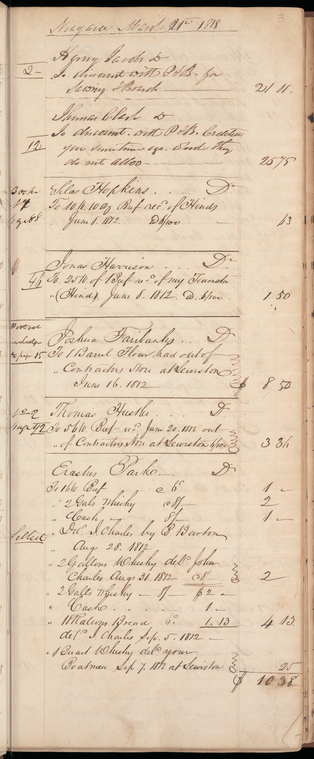 Niagara March 21st 1818
3
Henry Jacob Dr
2 To amount with P & B. for
21 11
James Clark Dr
12 To amount with P & B. Creditors
you sometime ago and they
do not allow 25 75
Silas Hopkins Dr
To 10 lb 10 oz Beef recd of Hinds
June 8. 1812 D 6/ 63
Jonas Harrison Dr
To 25 lb of Beef recd of my Teamster
(Hinds) June 8. 1812 D. 6/ 1 50
Joshua Fairbanks Dr
15 To 1 Barrel Flour had out of
Contractors Store at Lewiston
June 16. 1812 $ 8 50
Thomas Hustler Dr
To 56 lb Beef recd June 20. 1812 out
of Contractors Store at Lewiston 3 36
Erastus Parks Dr
To 16 lb Beef 1 -
" 2 Gals Whisky 8/ 2
" Cash 8/ 1 -
Settled Del. J. Charles by P Barton
Aug 28. 1812
" 2 Gallons Whisky deld John
Charles Aug 31. 1812 8/ 2
" 2 Galls Whisky - 8/ $2 -
" Cash 1 -
Bread 1.13 4 13
deld J Charles Sep. 5. 1812
1 Quart Whisky deld your
Boatmen Sep 7. 1812 at Lewiston 25
$ 10 38